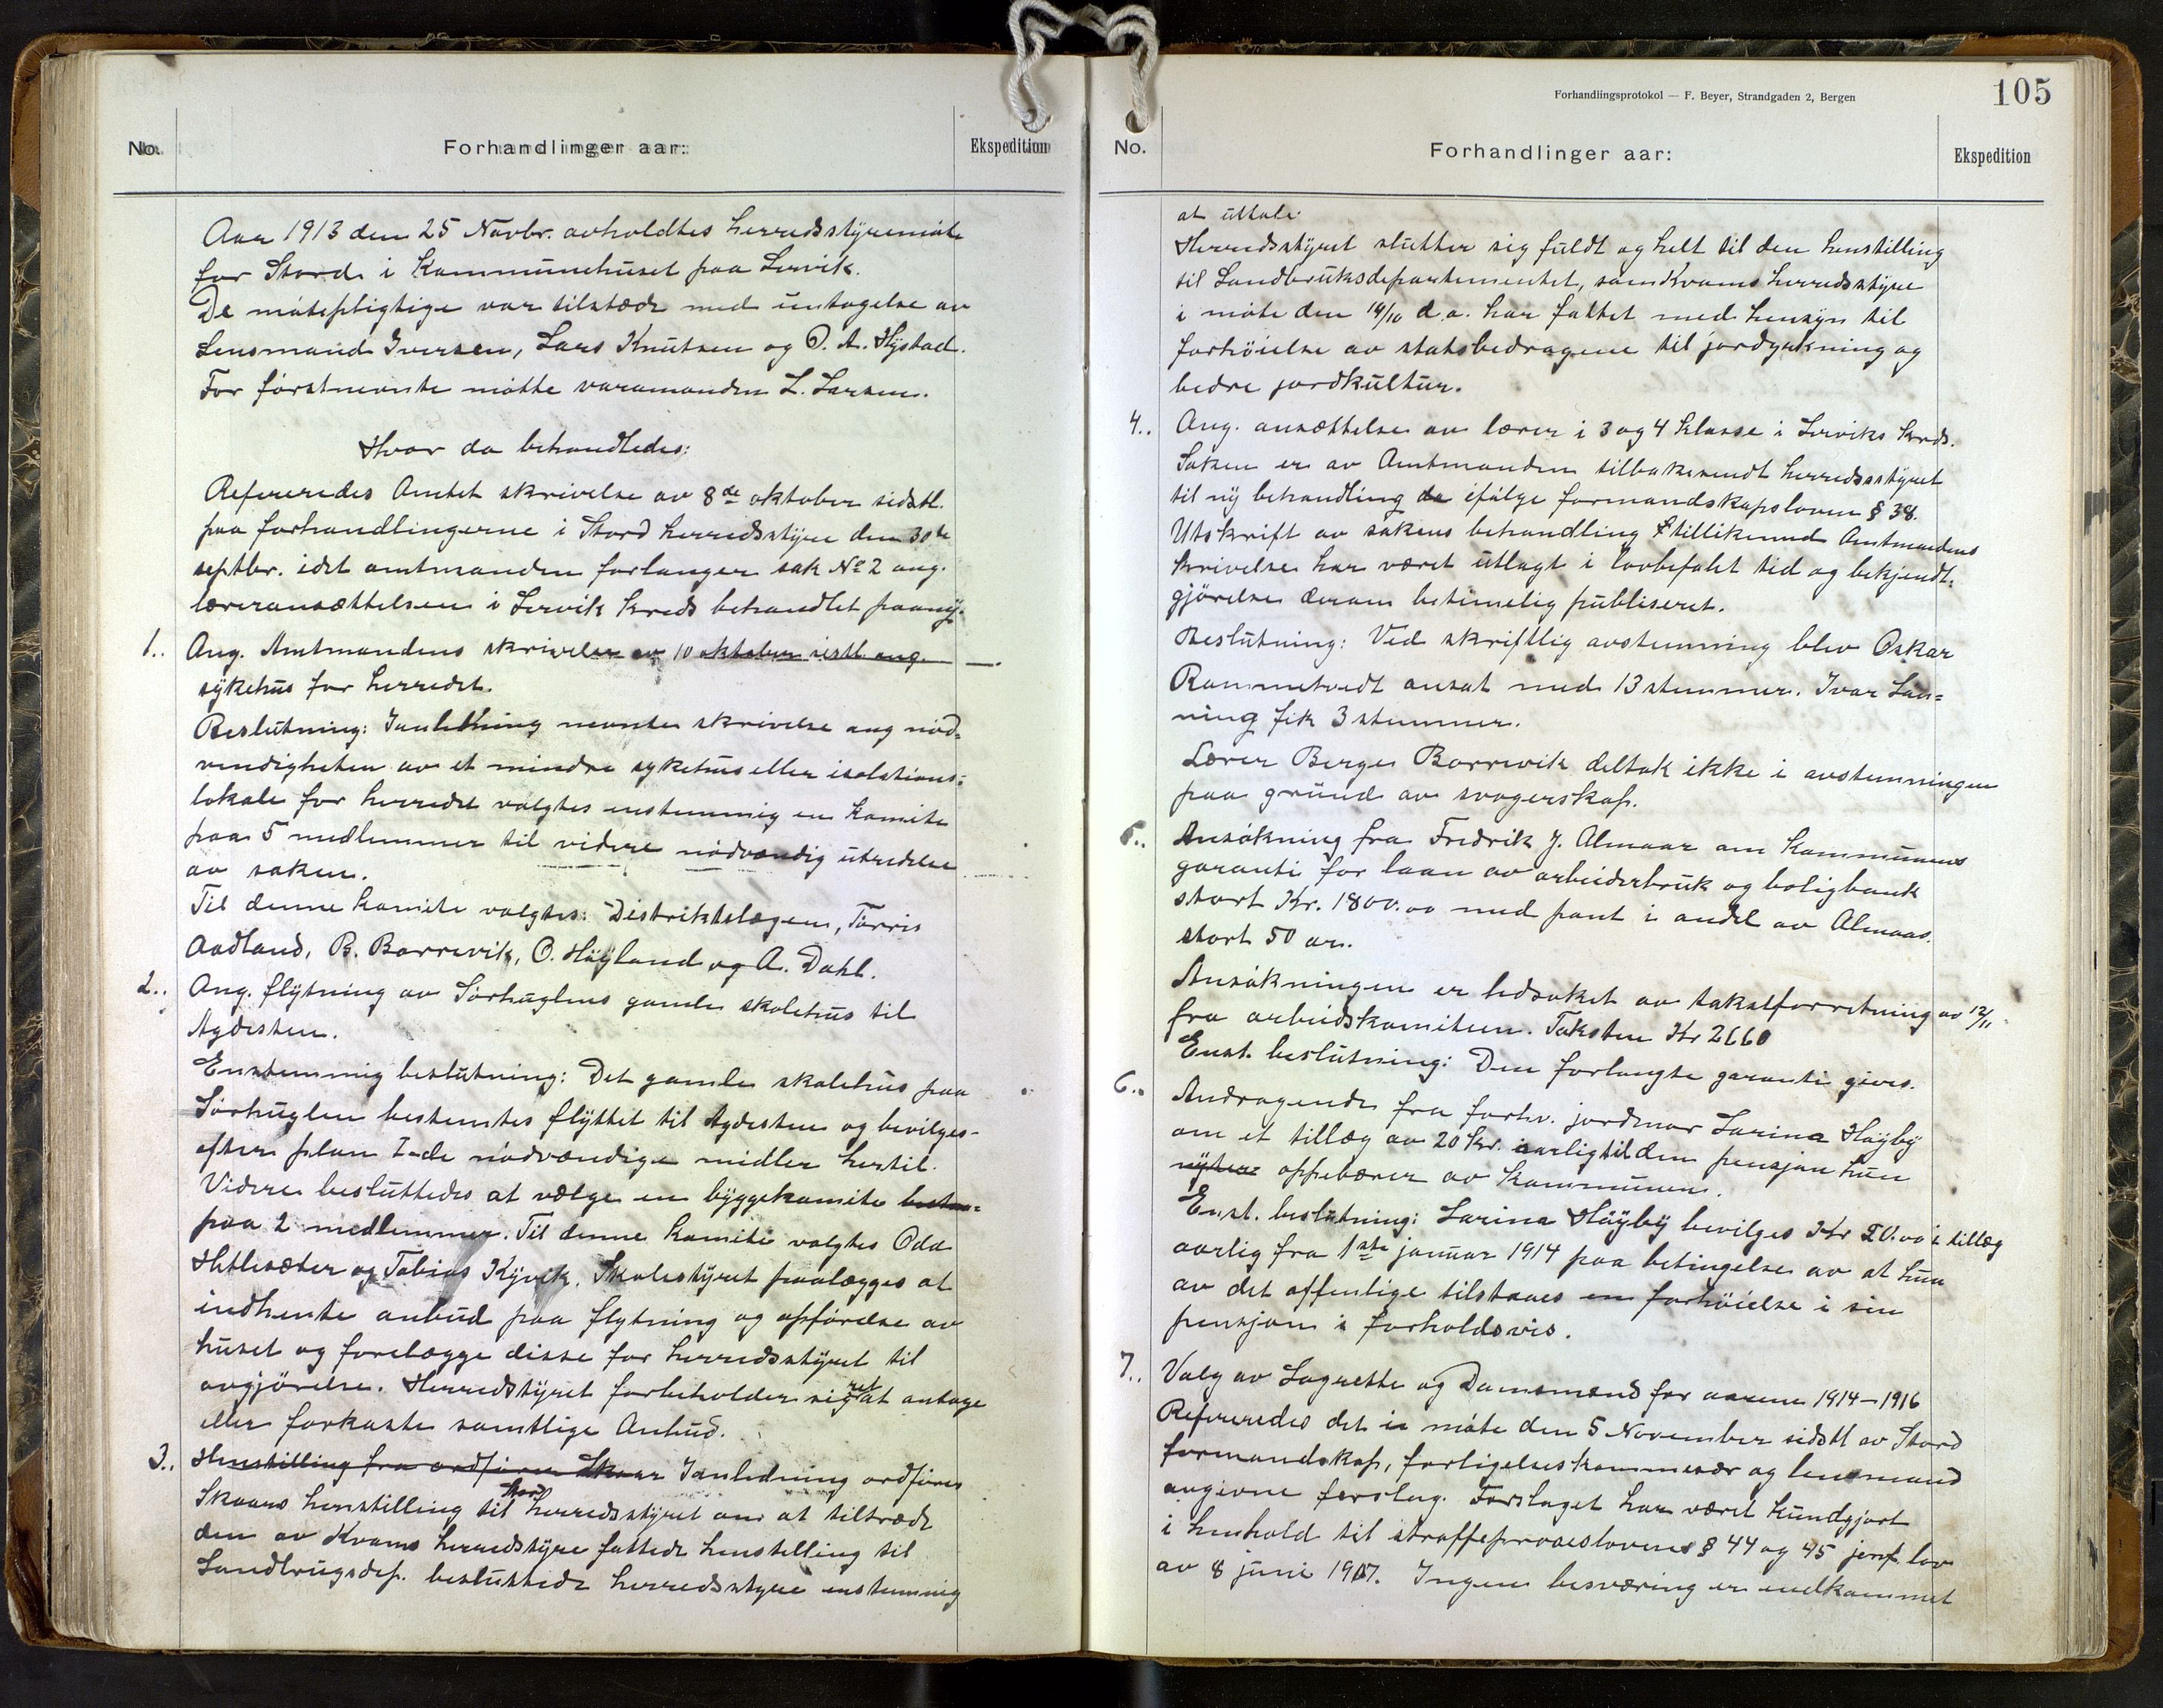 No. Forhandlinger aar: Ekspedition
Aar 1913 den 25 Novbr. avholdtes herredsstyremøte
for Stord i Kommunehuset paa Lervik.
De møtepligtige var tilstæde med untagelse av
Lensmand Iversen, Lars Knutsen og O. A. Hystad.
For førstnevnte møtte varamanden L. Larsen.
Hvor da behandledes:
Refereredes Amtet skrivelse av 8de oktober sidstl.
paa forhandlingerne i Stord herredsstyre den 30te
septbr. idet amtmanden forlanger sak No 2 ang.
læreransættelsen i Lervik kreds behandlet paany.
1.. Ang. Amtmandens skrivelse av 10 oktober sistl. ang.
sykehus for herredet.
Beslutning: Ianledning nevnte skrivelse ang nød-
vendigheten av et mindre sykehus eller isolations-
lokale for herredet valgtes enstemmig en komite
paa 5 medlemmer til videre nødvændig utredelse
av saken.
Til denne komite valgtes: Distriktslægen, Tørris
Aadland, B. Borrevik, O. Høyland og A. Dahl.
2.. Ang. flytning av Sørhuglens gamle skolehus til
Agdesten.
Enstemmig beslutning: Det gamle skolehus paa
Sørhuglen bestemtes flyttet til Agdesten og bevilges-
efter plan I de nødvændige midler hertil.
Videre besluttedes at vælge en byggekomite
paa 2 medlemmer. Til denne komite valgtes Odd
Hetlesæter og Tobias Kyvik. Skolestyret paalægges at
indhente anbud paa flytning og opførelse av
huset og forelægge disse for herredsstyret til
avgjørelse. Herredstyret forbeholder sig ret at antage
eller forkaste samtlige Anbud.
3.. Henstilling fra ordfører Skaar Ianledning ordfører
Skaars henstilling til Stord herredsstyret om at tiltræde
den av Kvams herredstyre fattede henstilling til
Landbrugsdep. besluttede herredsstyre enstemmig
Forhandlingsprotokol — F. Beyer, Strandgaden 2, Bergen
105
No. Forhandlinger aar: Ekspedition
at uttale
Herredsstyret slutter sig fuldt og helt til den henstilling
til Landbruksdepartementet, som Kvams herredsstyre
i møte den 14/10 d.a. har fattet med hensyn til
forhøielse av statsbedragene til jorddyrkning og
bedre jordkultur.
4.. Ang. ansættelse av lærer i 3 og 4 klasse i Lerviks krds.
Saken er av Amtmanden tilbakesendt herredsstyret
til ny behandling de ifølge formandskapsloven § 38.
Utskrift av sakens behandling tillikemed Amtmandens
skrivelse har været utlagt i lovbefalet tid og bekjendt-
gjørelse derom betimelig publiseret.
Beslutning: Ved skriftlig avstemning blev Oskar
Rommetvedt ansat med 13 stemmer. Ivar Lan-
ning fik 3 stemmer.
Lærer Berge Borrevik deltok ikke i avstemningen
paa grund av svogerskap.
5.. Ansøkning fra Fredrik J. Almaas om Kommunens
garanti for laan av arbeiderbruk og boligbank
stort Kr. 1800.00 med pant i andel av Almaas.
stort 50 ar.
Ansøkningen er ledsaket av takstforretning av 12/11
fra arbeidskomiteen. Taksten Kr 2660
Enst. beslutning: Den forlangte garanti gives.
6.. Andragende fra forhv. jordmor Larina Høyby
om et tillæg av 20 kr. aarlig til den pensjon hun
nyter oppebærer av Kommunen.
Enst. beslutning: Larina Høyby bevilges Kr 20.00 i tillæg
aarlig fra 1ste januar 1914 paa betingelse av at hun
av det offentlige tilstaaes en forhøielse i sin
pensjon i forholdsvis.
7.. Valg av Lagrette og Domsmænd for aarene 1914—1916
Refereredes det i møte den 5 November sidstl av Stord
formandskap, forligelseskommesær og lensmand
angivne forslag. Forslaget har været kundgjort
i henhold til straffeproceslovens § 44 og 45 jemf. lov
av 8 juni 1907. Ingen besværing er indkommet